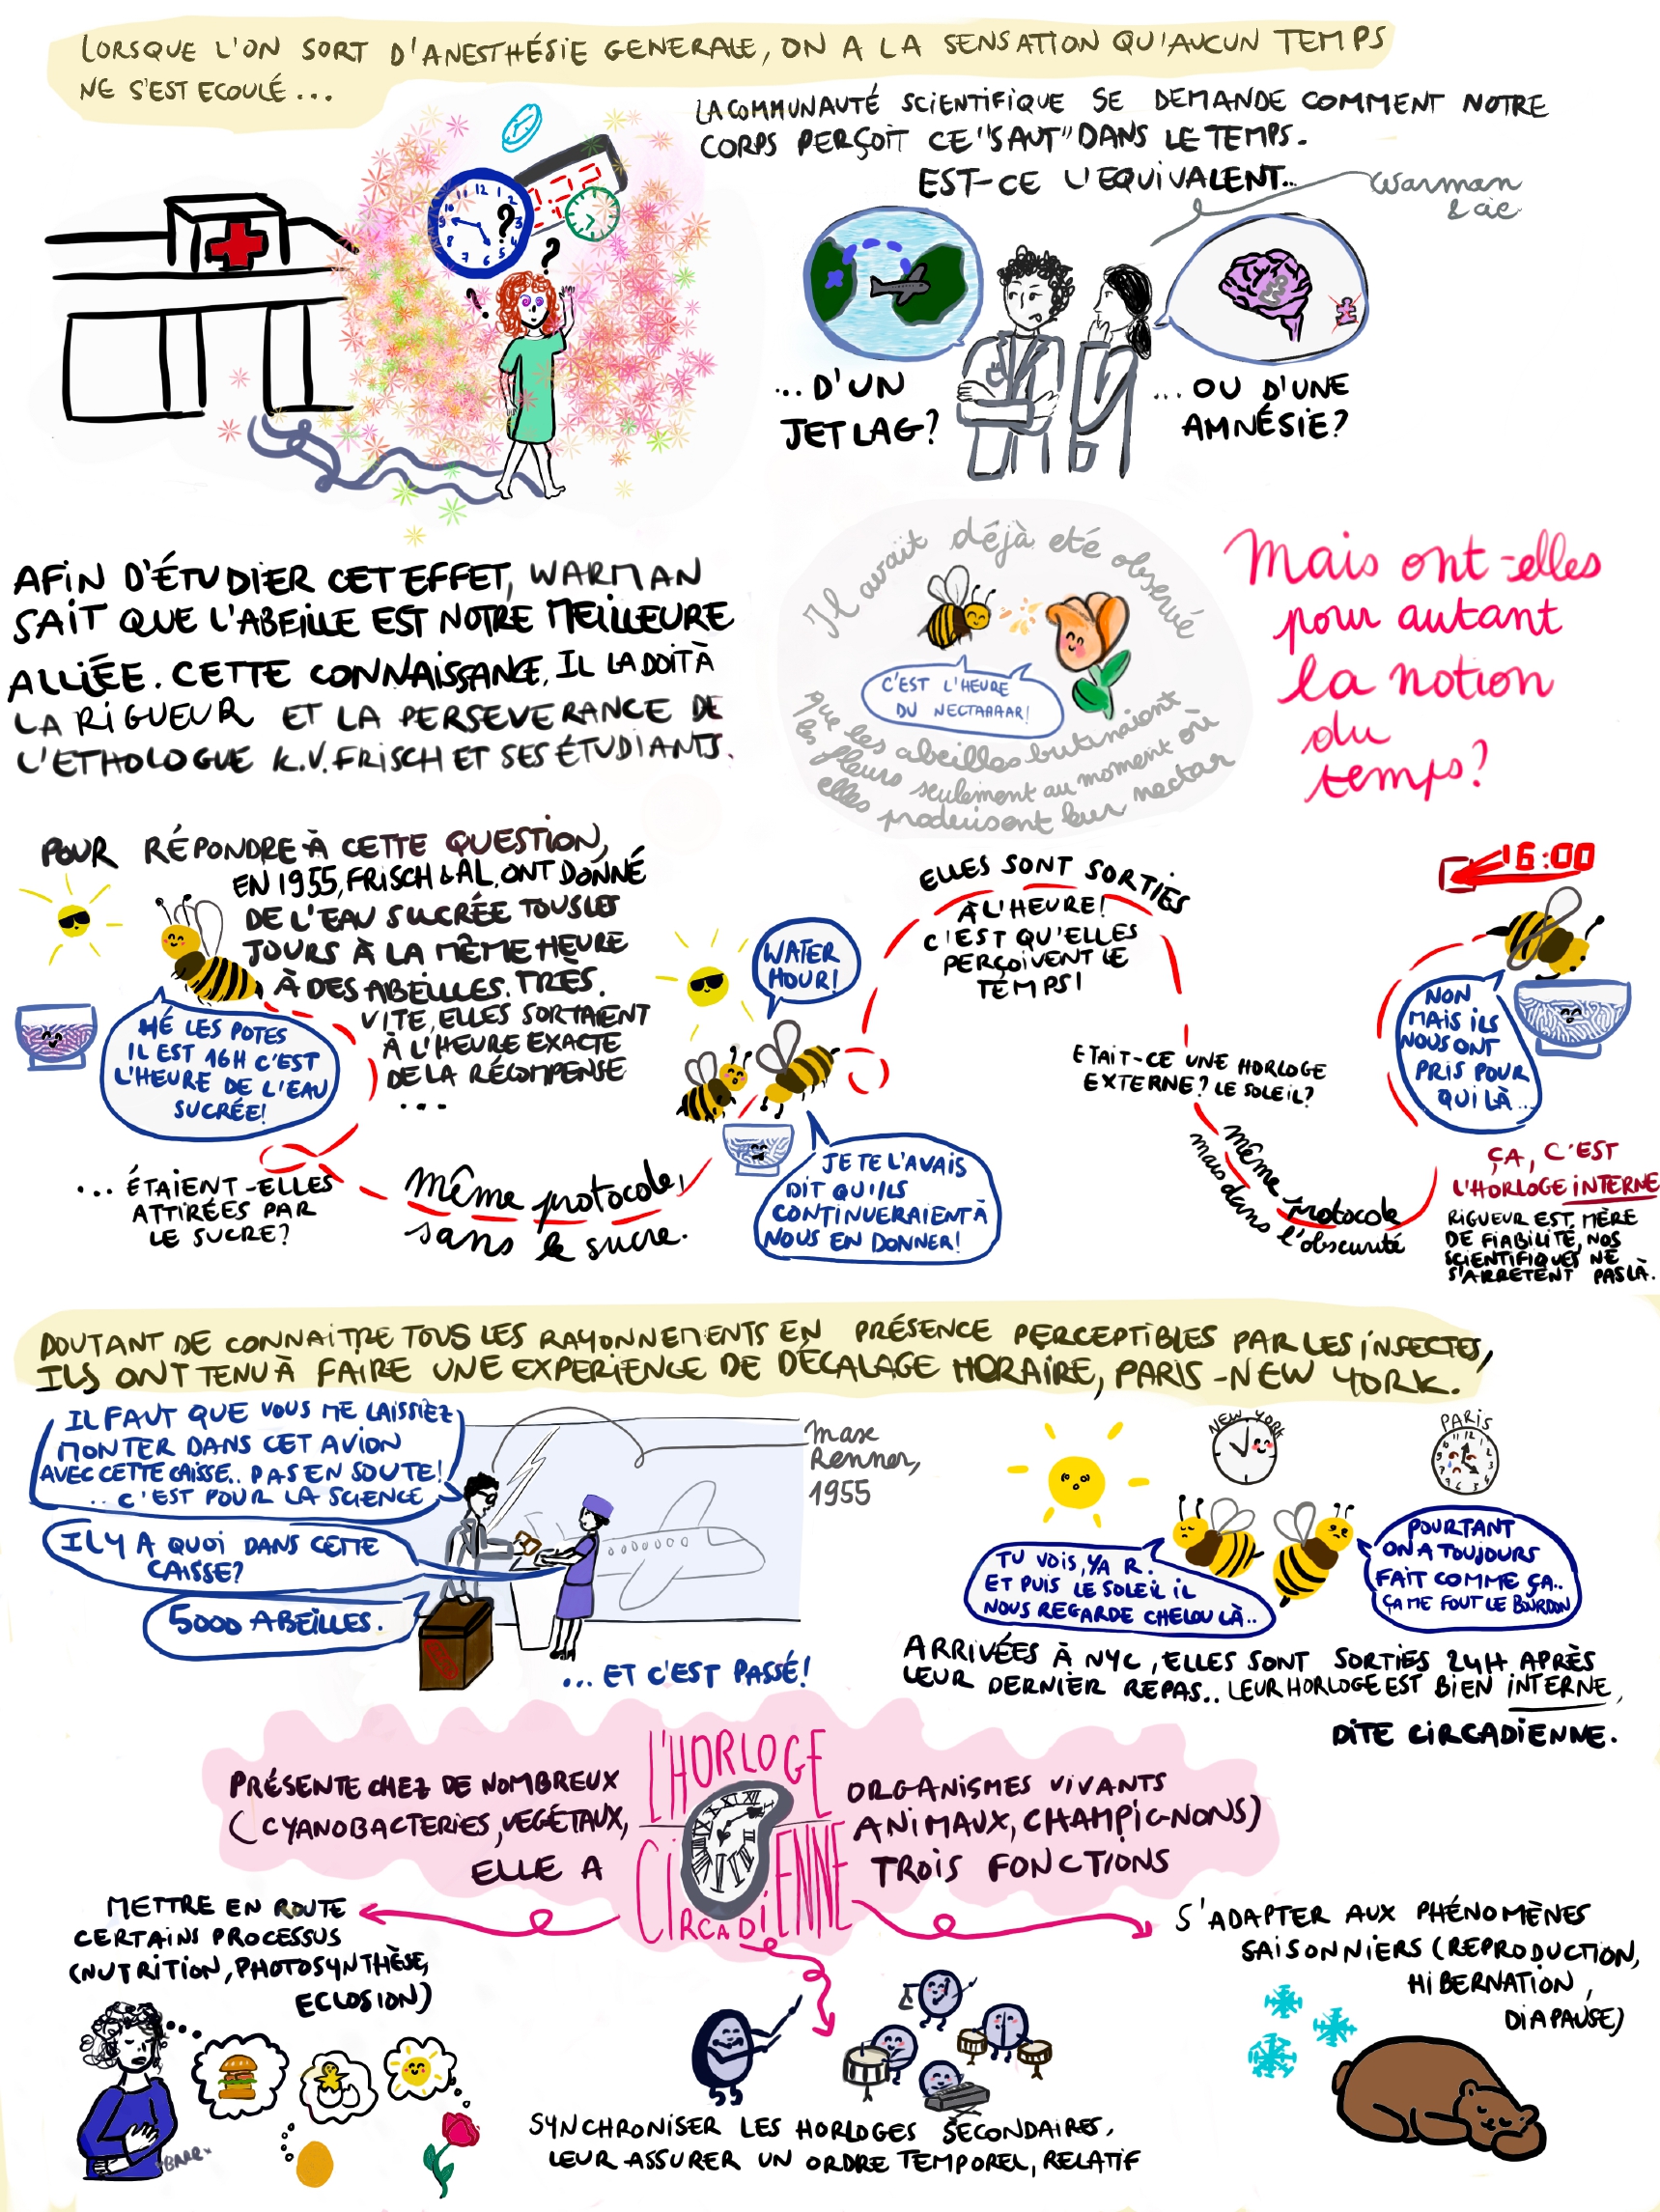 LORSQUE L'ON SORT D'ANESTHÉSIE GENERALE, ON A LA SENSATION QU'AUCUN TEMPS
NE S'EST ECOULÉ...
LA COMMUNAUTÉ SCIENTIFIQUE SE DEMANDE COMMENT NOTRE
CORPS PERÇOIT CE "SAUT" DANS LE TEMPS.
EST-CE L'EQUIVALENT...
Warman
& cie
...D'UN
JETLAG?
...OU D'UNE
AMNÉSIE?
AFIN D'ÉTUDIER CET EFFET, WARMAN
SAIT QUE L'ABEILLE EST NOTRE MEILLEURE
ALLIÉE. CETTE CONNAISSANCE, IL LA DOIT À
LA RIGUEUR ET LA PERSEVERANCE DE
L'ETHOLOGUE K.V.FRISCH ET SES ÉTUDIANTS.
Il avait déjà eté observé
C'EST L'HEURE
DU NECTAAAAR!
que les abeilles butinaient
les fleurs seulement au moment où
elles produisent leur nectar
Mais ont-elles
pour autant
la notion
du
temps?
POUR RÉPONDRE À CETTE QUESTION,
EN 1955, FRISCH & AL. ONT DONNÉ
DE L'EAU SUCRÉE TOUS LES
JOURS À LA MÊME HEURE
À DES ABEILLES. TRÈS
VITE, ELLES SORTAIENT
À L'HEURE EXACTE
DE LA RÉCOMPENSE
...
HÉ LES POTES
IL EST 16H C'EST
L'HEURE DE L'EAU
SUCRÉE!
...ÉTAIENT-ELLES
ATTIRÉES PAR
LE SUCRE?
même protocole,
sans le sucre.
WATER
HOUR!
JE TE L'AVAIS
DIT QU'ILS
CONTINUERAIENT À
NOUS EN DONNER!
ELLES SONT SORTIES
À L'HEURE!
C'EST QU'ELLES
PERÇOIVENT LE
TEMPS!
ETAIT-CE UNE HORLOGE
EXTERNE? LE SOLEIL?
même protocole
mais dans l'obscurité
16:00
NON
MAIS ILS
NOUS ONT
PRIS POUR
QUI LÀ...
ÇA, C'EST
L'HORLOGE INTERNE
RIGUEUR EST MÈRE
DE FIABILITÉ, NOS
SCIENTIFIQUES NE
S'ARRÊTENT PAS LÀ.
DOUTANT DE CONNAITRE TOUS LES RAYONNEMENTS EN PRÉSENCE PERÇEPTIBLES PAR LES INSECTES,
ILS ONT TENU À FAIRE UNE EXPERIENCE DE DÉCALAGE HORAIRE, PARIS-NEW YORK.
IL FAUT QUE VOUS ME LAISSIEZ
MONTER DANS CET AVION
AVEC CETTE CAISSE.. PAS EN SOUTE!
..C'EST POUR LA SCIENCE
IL Y A QUOI DANS CETTE
CAISSE?
5000 ABEILLES.
Max
Renner,
1955
...ET C'EST PASSÉ!
NEW YORK
PARIS
TU VOIS, YA R.
ET PUIS LE SOLEIL IL
NOUS REGARDE CHELOU LÀ..
POURTANT
ON A TOUJOURS
FAIT COMME ÇA..
ÇA ME FOUT LE BOURDON
ARRIVÉES À NYC, ELLES SONT SORTIES 24H APRÈS
LEUR DERNIER REPAS.. LEUR HORLOGE EST BIEN INTERNE,
DITE CIRCADIENNE.
L'HORLOGE
CIRCADIENNE
PRÉSENTE CHEZ DE NOMBREUX ORGANISMES VIVANTS
(CYANOBACTERIES, VEGÉTAUX, ANIMAUX, CHAMPIGNONS)
ELLE A TROIS FONCTIONS
METTRE EN ROUTE
CERTAINS PROCESSUS
(NUTRITION, PHOTOSYNTHÈSE,
ECLOSION)
S'ADAPTER AUX PHÉNOMÈNES
SAISONNIERS (REPRODUCTION,
HIBERNATION,
DIAPAUSE)
SYNCHRONISER LES HORLOGES SECONDAIRES,
LEUR ASSURER UN ORDRE TEMPOREL, RELATIF